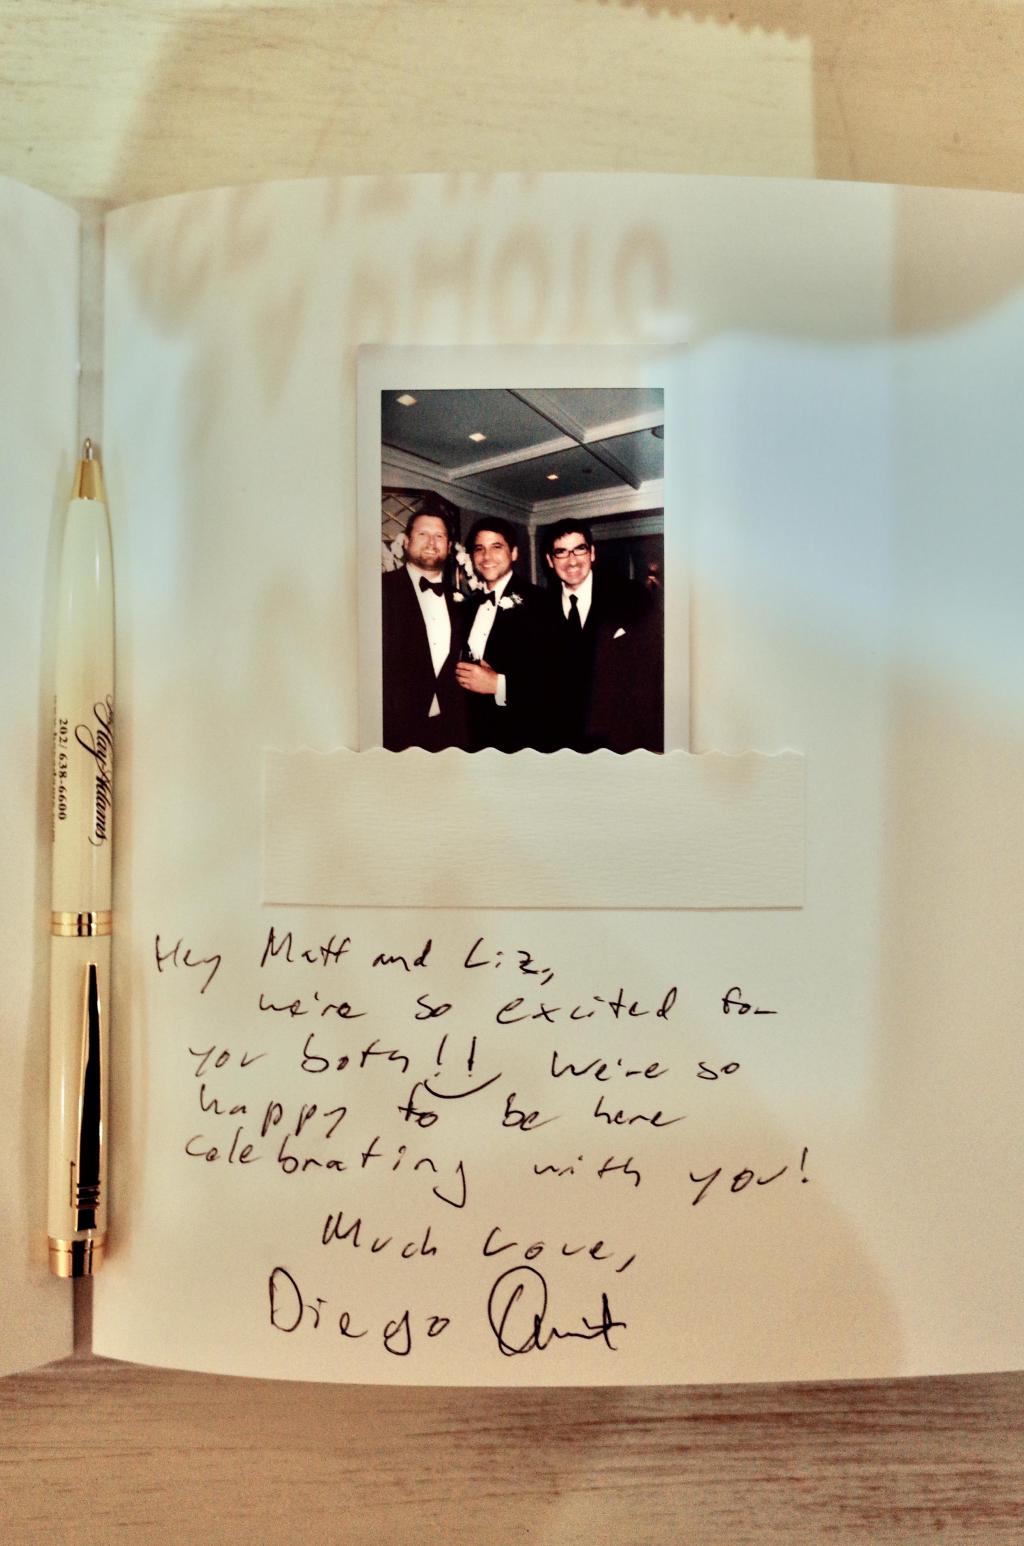 PHOTO
Hay Adams
202/638-6600
Hey Matt and Liz,
we're so excited for
you both!! We're so
happy to be here
celebrating with you!
Much Love,
Diego